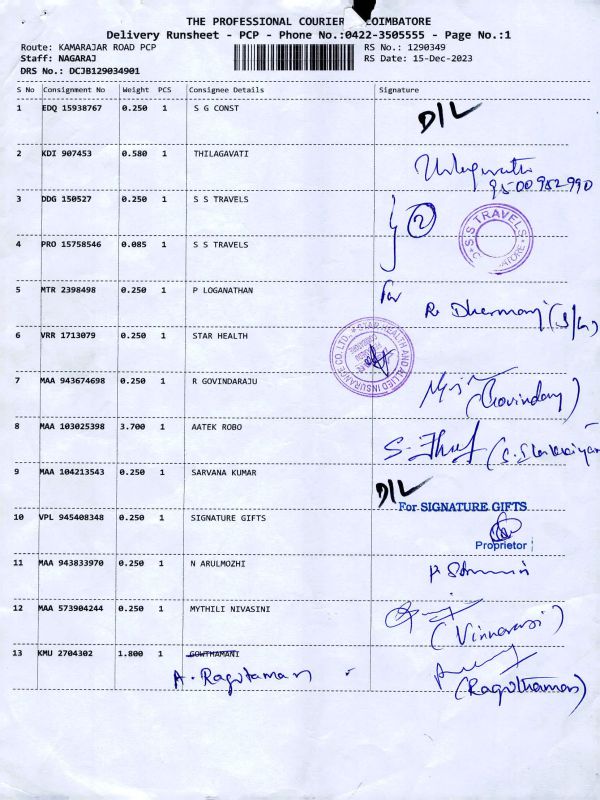 THE PROFESSIONAL COURIER COIMBATORE
Delivery Runsheet - PCP - Phone No.:0422-3505555 - Page No.:1
Route: KAMARAJAR ROAD PCP
RS No.: 1290349
Staff: NAGARAJ
RS Date: 15-Dec-2023
DRS No.: DCJB129034901
S No Consignment No Weight PCS Consignee Details Signature
1 EDQ 15938767 0.250 1 S G CONST D/L
2 KDI 907453 0.580 1 THILAGAVATI
9500952990
3 DDG 150527 0.250 1 S S TRAVELS 2
S S TRAVELS
4 PRO 15758546 0.085 1 S S TRAVELS
5 MTR 2398498 0.250 1 P LOGANATHAN for
6 VRR 1713079 0.250 1 STAR HEALTH
STAR HEALTH AND ALLIED INSURANCE CO. LTD.
7 MAA 943674698 0.250 1 R GOVINDARAJU
8 MAA 103025398 3.700 1 AATEK ROBO
9 MAA 104213543 0.250 1 SARVANA KUMAR D/L
For SIGNATURE GIFTS
10 VPL 945408348 0.250 1 SIGNATURE GIFTS
Proprietor
11 MAA 943833970 0.250 1 N ARULMOZHI
12 MAA 573904244 0.250 1 MYTHILI NIVASINI
13 KMU 2704302 1.800 1 GOWTHAMANI
A. Ragutaman
(Raguthaman)